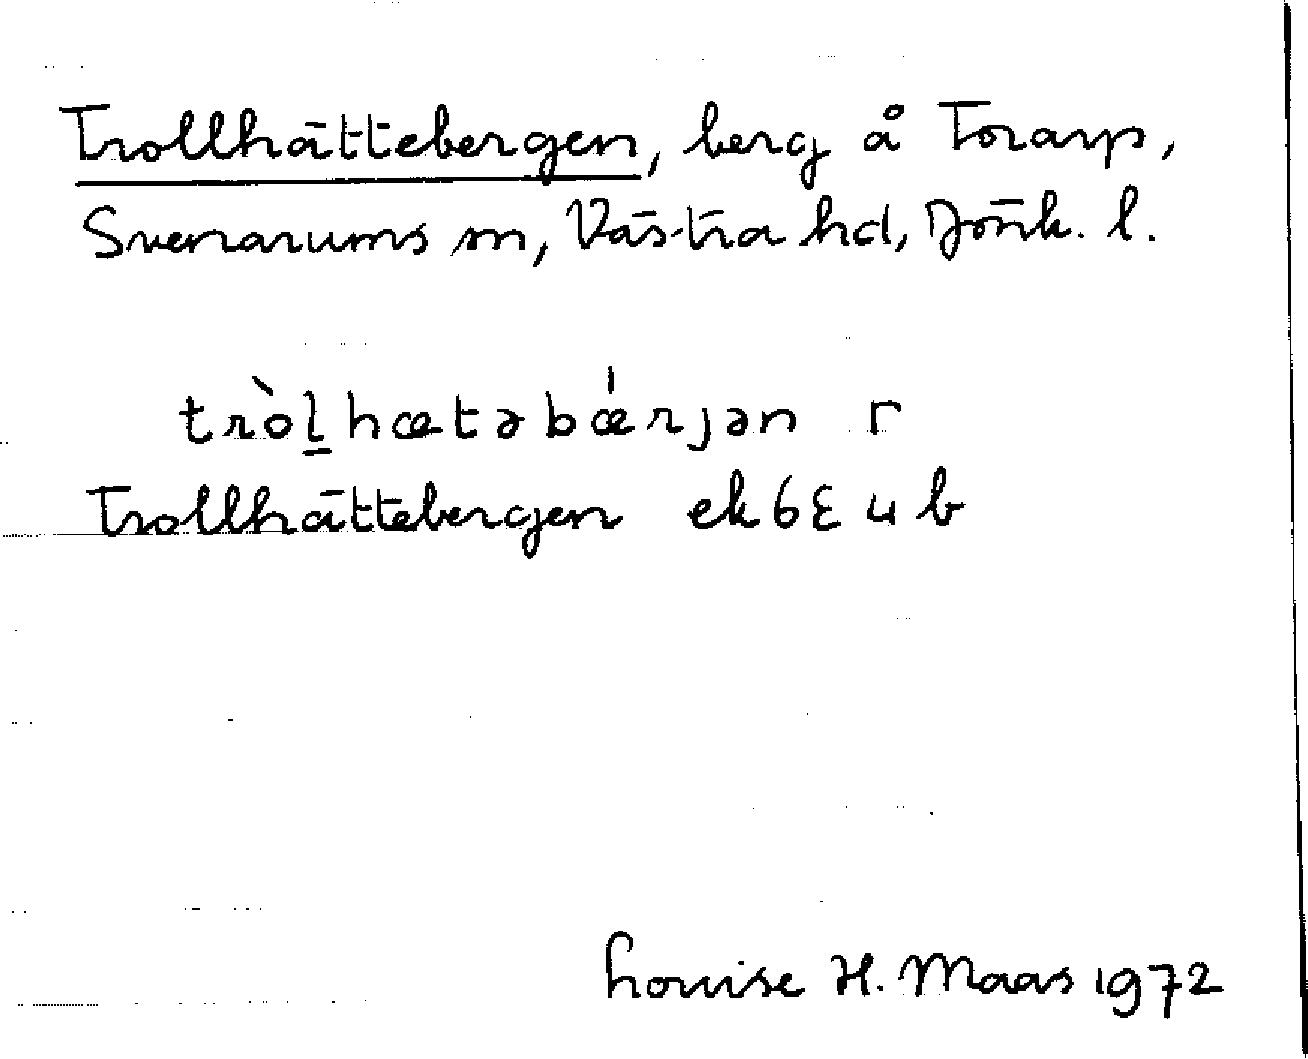 Trollhättebergen, berg å Torarp,
Svenarums sn, Västra hd, Jönk. l.
tròl̲hætəbǽrjən r
Trollhättebergen ek 6E 4 b
Louise H. Maas 1972